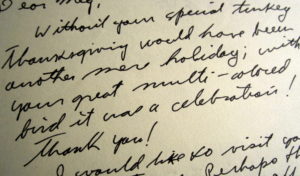 Dear Meg,
Without your special turkey
Thanksgiving would have been
another mere holiday; with
your great multi-colored
bird it was a celebration!
Thank you!
I would like to visit you
Perhaps